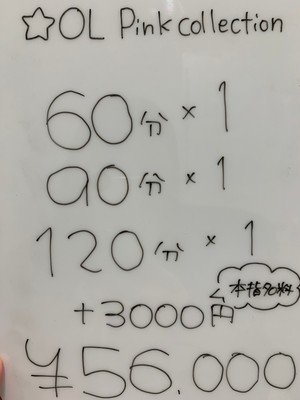 ☆OL Pink collection
60分 × 1
90分 × 1
120分 × 1
本指名料
+3000円
¥56.000